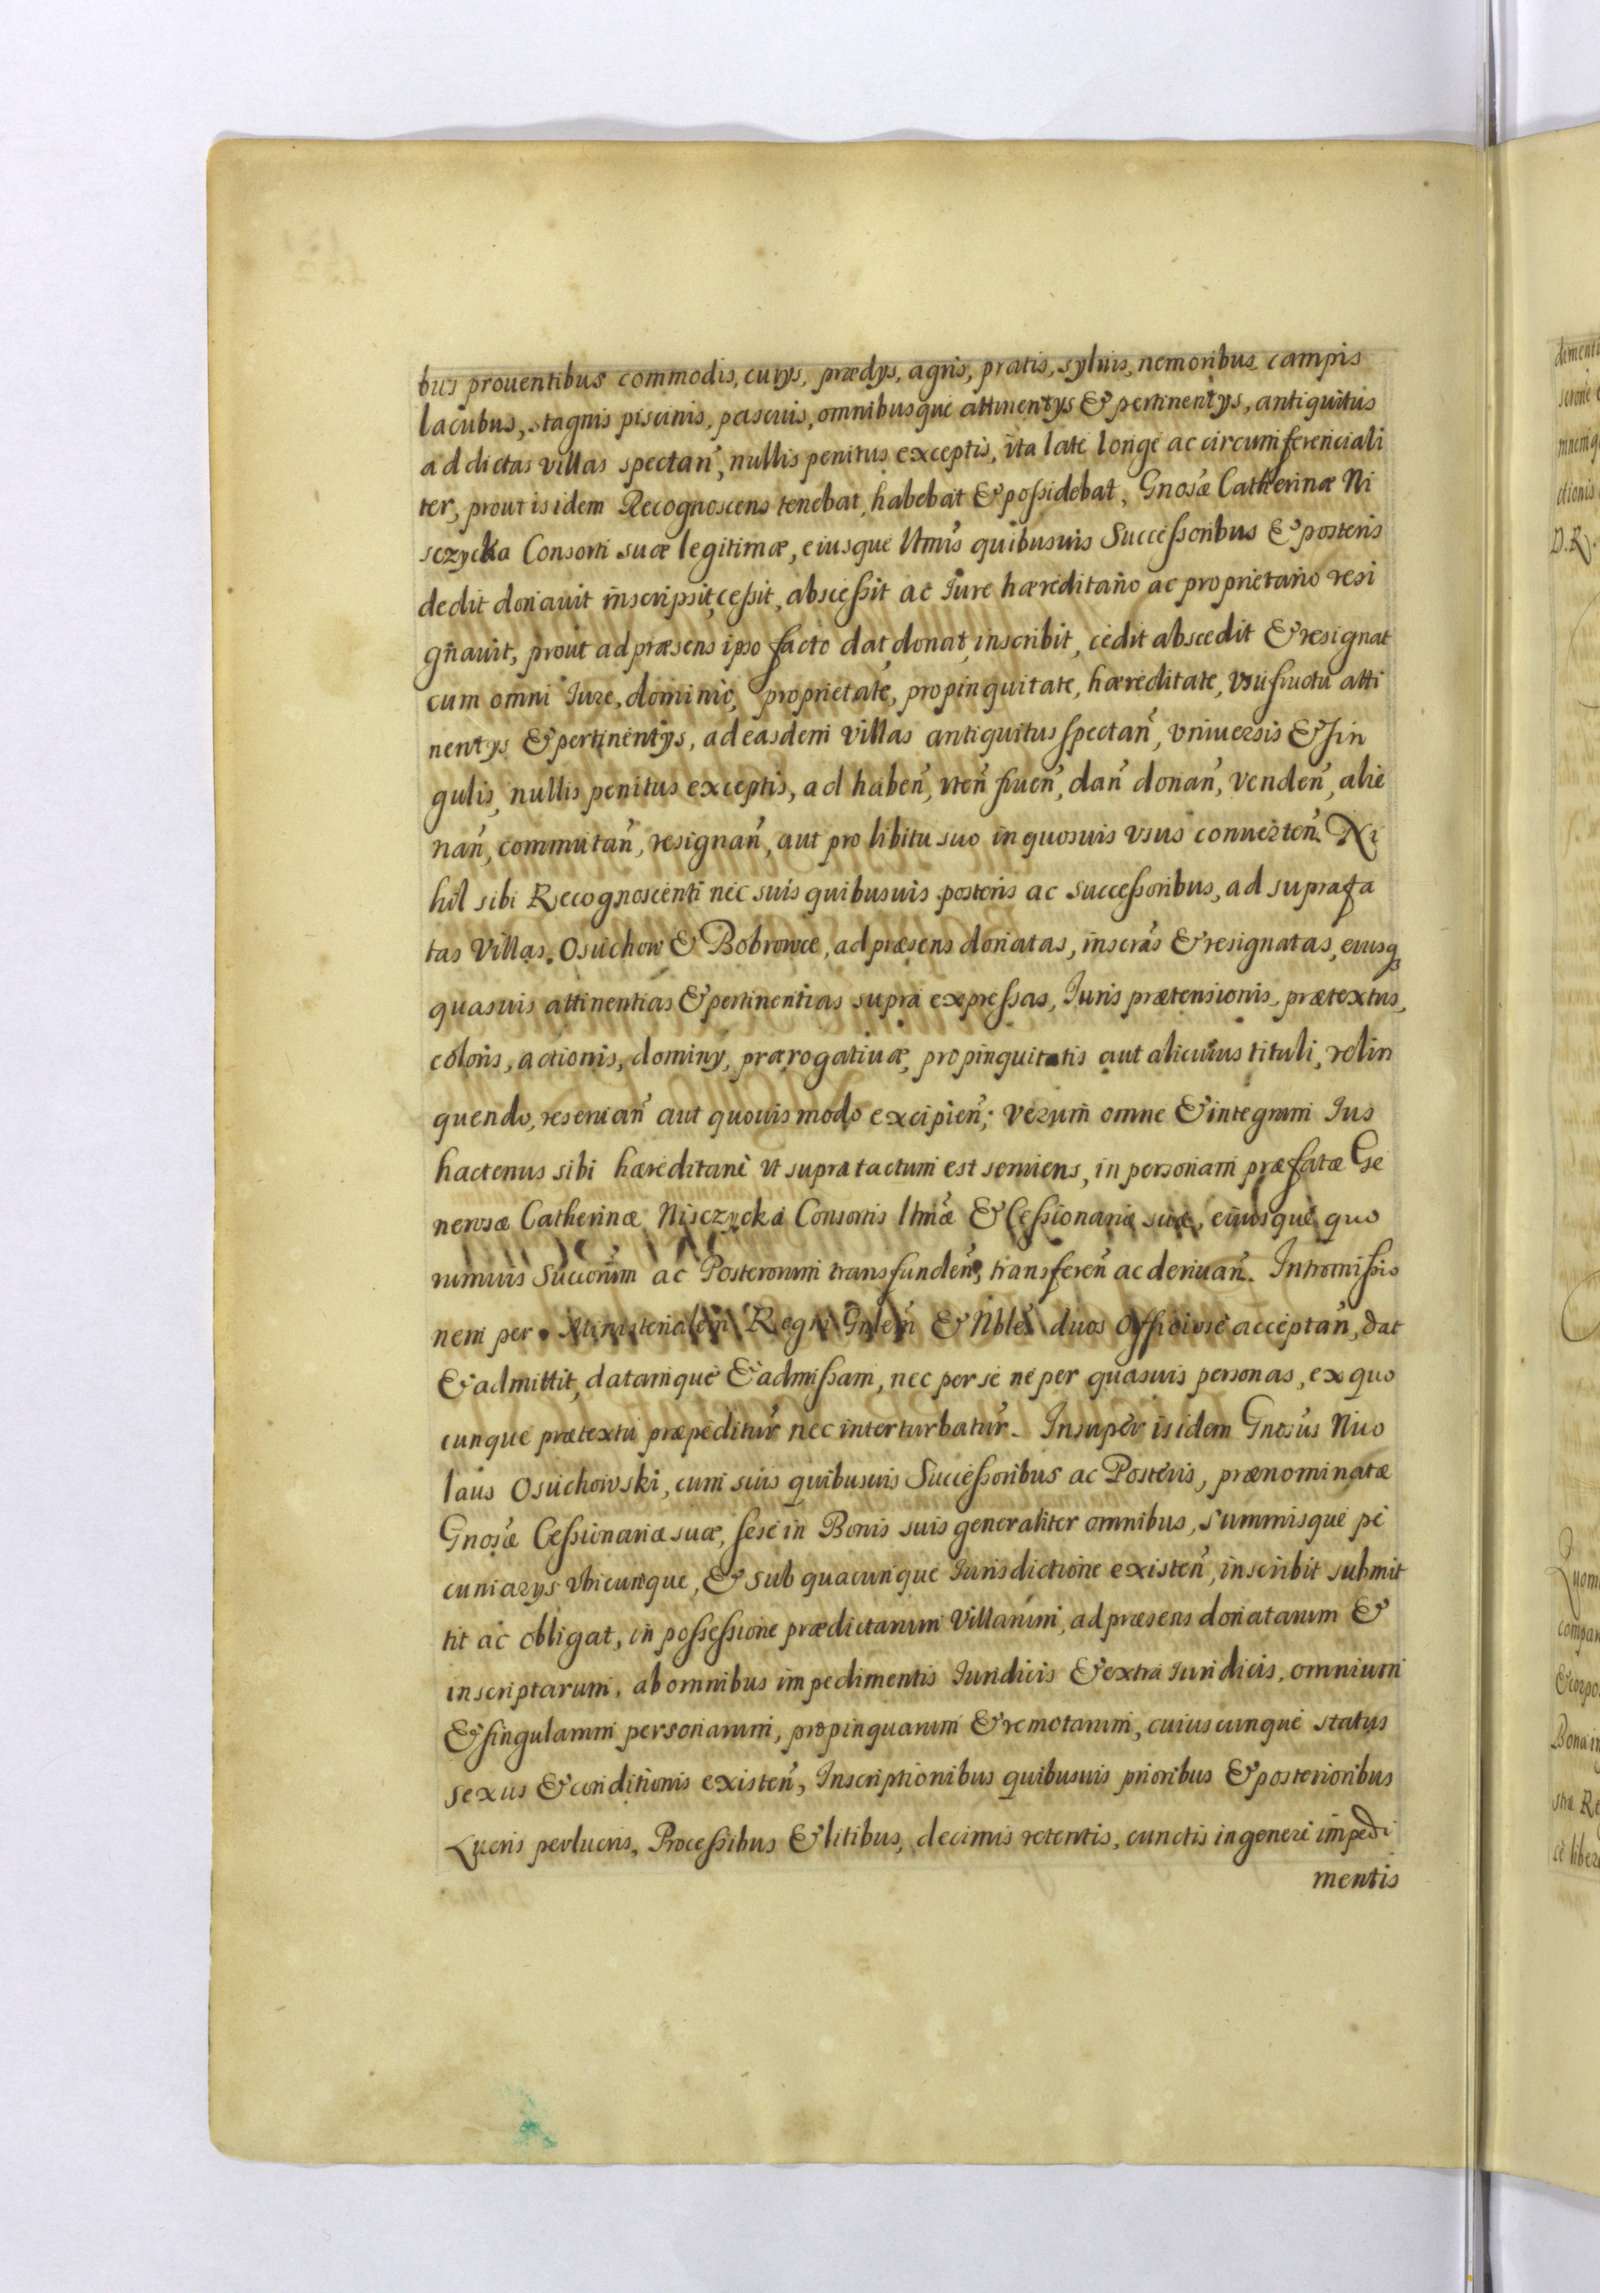 bus prouentibus commodis, curys, prædys, agris, pratis, syluis, nemoribus campis
lacubus, stagnis piscinis, pascuis, omnibusque attinentys & pertinentys, antiquitus
ad dictas villas spectan̄, nullis penitus exceptis, ita late longe ac circumferenciali
ter, prout isidem Recognoscens tenebat, habebat & possidebat, Gnosæ Catherinæ Ni
sczycka Consorti suæ legitimæ, eiusque ltmis quibusuis Successoribus & posteris
dedit donauit inscripsit, cessit, abscessit ac Iure hæreditario ac proprietario resi
gnauit, prout ad præsens ipso facto dat donat, inscribit, cedit abscedit & resignat
cum omni Iure, dominio, proprietate, propinquitate, hæreditate, vsufructu atti
nentys & pertinentys, ad easdem villas antiquitus spectan̄, vniuersis & sin
gulis, nullis penitus exceptis, ad haben̄, vten̄ fruen̄, dan̄ donan̄, venden̄, alie
nan̄, commutan̄, resignan̄, aut pro libitu suo in quosuis vsus conuerten̄. Ni
hil sibi Recognoscenti nec suis quibusuis posteris ac successoribus, ad suprafa
tas Villas. Osuchow & Bobrowce, ad præsens donatas, inscras & resignatas, eiusq
quasuis attinentias & pertinentias supra expressas, Iuris prætensionis, prætextus,
coloris, actionis, dominy, prærogatiuæ, propinquitatis aut alicuius tituli, relin
quendo, reseruan̄ aut quouis modo excipien̄; verum omne & integrum Ius
hactenus sibi hæreditarie vt supra tactum est seruiens, in personam præfatæ Ge
nerosæ Catherinæ Nisczycka Consortis ltmæ & Cessionariæ suæ, eiusque quo
rumuis Succorum ac Posterorum transfunden̄, transferen̄ ac deriuan̄. Intromissio
nem per Ministerialem Regni Gnlem & Nbles duos Officiose acceptan̄, dat
& admittit, datamque & admissam, nec per se ne per quasuis personas, ex quo
cunque prætextu præpeditur nec interturbatur. Insuper isidem Gnosus Nico
laus Osuchowski, cum suis quibusuis Successoribus ac Posteris, prænominatæ
Gnosæ Cessionariæ suæ, sese in Bonis suis generaliter omnibus, summisque pe
cuniarys vbicunque, & sub quacunque Iurisdictione existen̄, inscribit submit
tit ac obligat, in possessione prædictarum Villarum, ad præsens donatarum &
inscriptarum, ab omnibus impedimentis Iuridicis & extra Iuridicis, omnium
& singularum personarum, propinquarum & remotarum, cuiuscunque status
sexus & conditionis existen̄, Inscriptionibus quibusuis prioribus & posterioribus
Lucris perlucris, Processibus & litibus, decimis retentis, cunctis in genere impedi
mentis